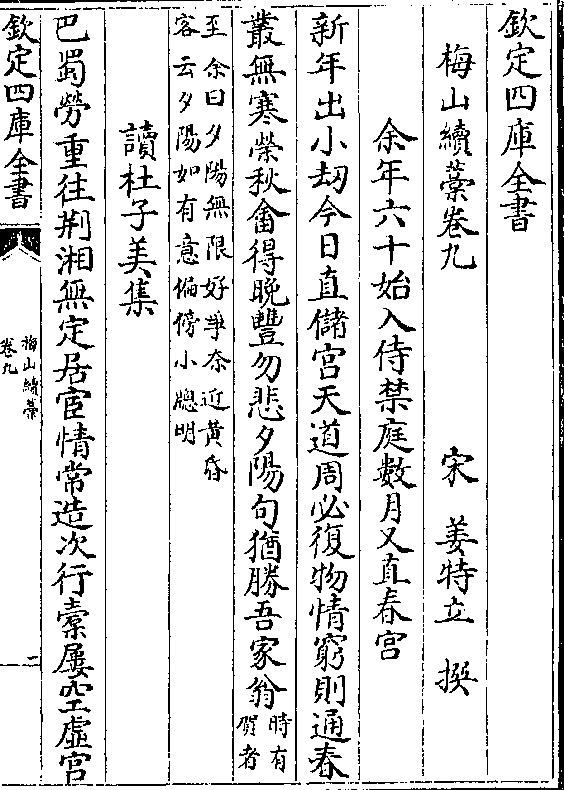 欽定四庫全書
梅山續藁卷九
宋 姜特立 撰
余年六十始入侍禁庭數月又直春宫
新年出小刼今日直儲宫天道周必復物情窮則通春
叢無寒榮秋畬得晚豐勿悲夕陽句猶勝吾家翁時有賀者
至余曰夕陽無限好爭奈近黄昏
客云夕陽如有意偏傍小牕明
讀杜子美集
巴蜀勞重往荆湘無定居宦情常造次行橐屢空虛宫
欽定四庫全書
梅山續藁
卷九
二